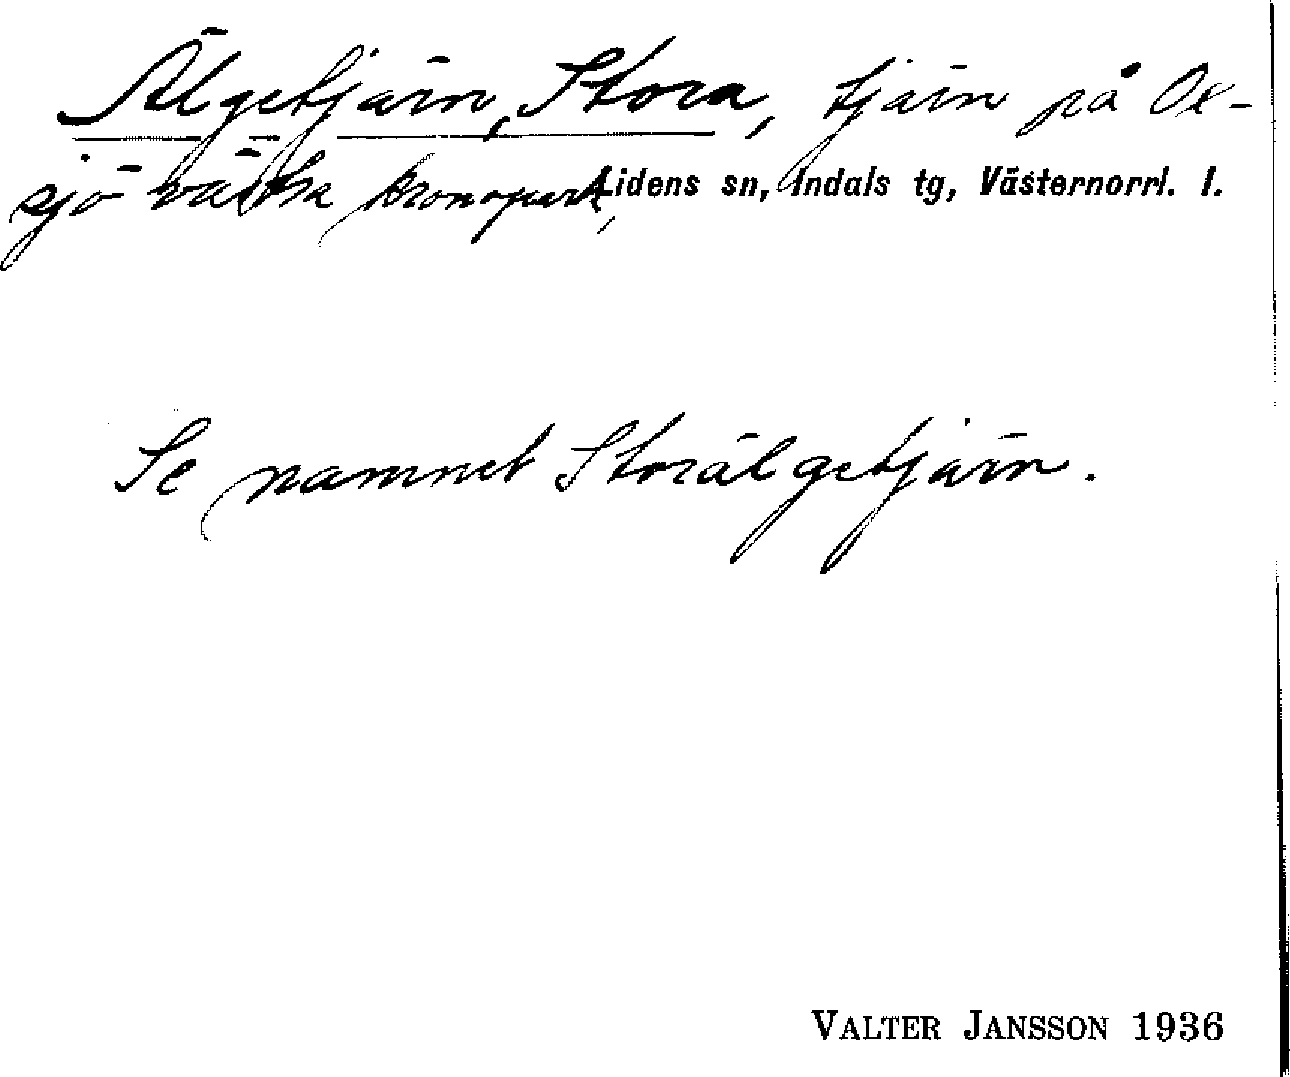 Älgetjärn, Stora, tjärn på Ox-
sjö västra kronopark, Lidens sn, Indals tg, Västernorrl. l.
Se namnet Storälgetjärn.
VALTER JANSSON 1936